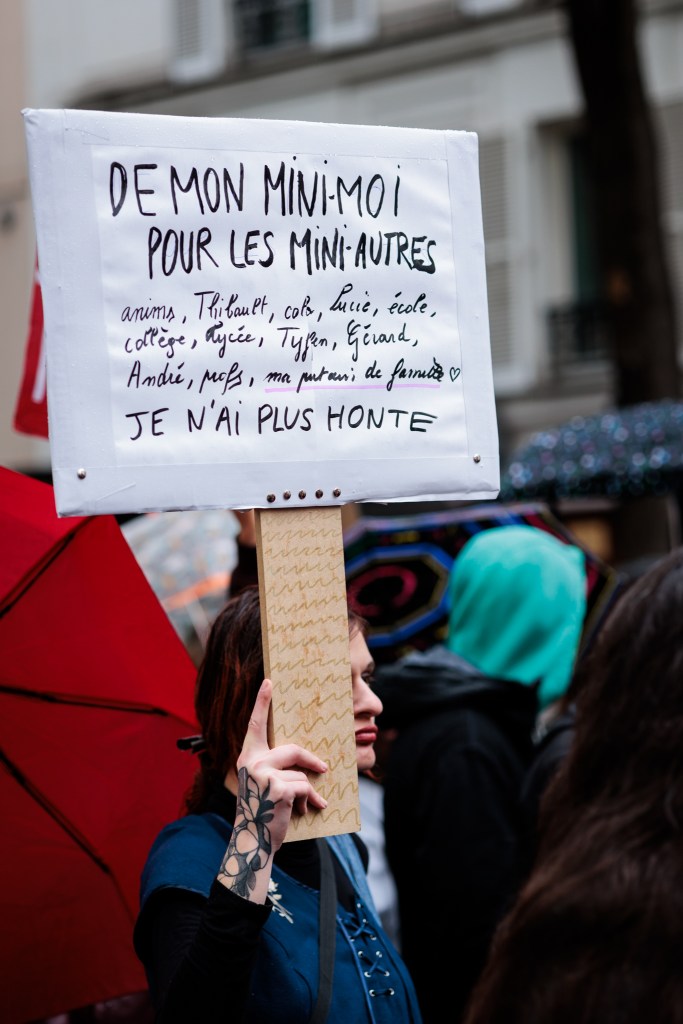 DE MON MINI-MOI
POUR LES MINI-AUTRES
anims, Thibault, cols, Lucie, école,
collège, lycée, Tyfen, Gérard,
André, profs, ma putain de famille ♡
JE N'AI PLUS HONTE